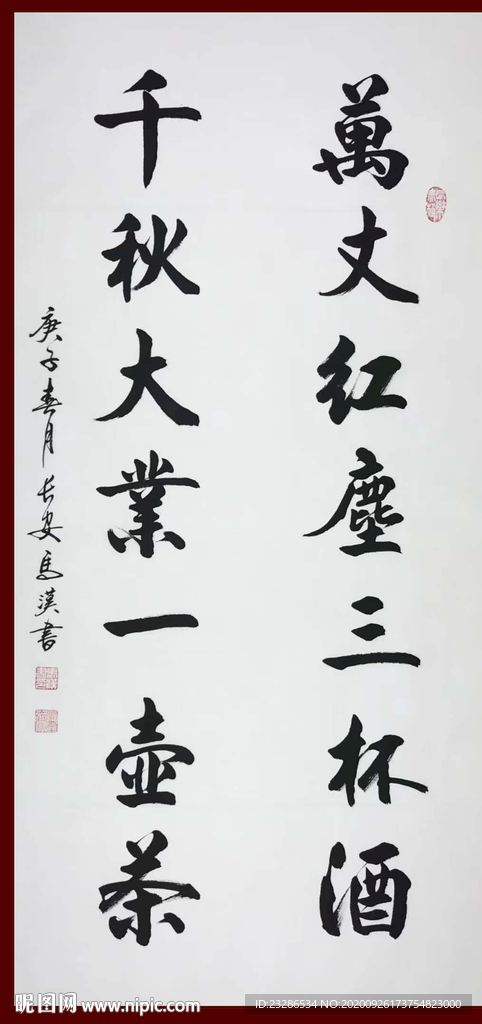 萬丈红塵三杯酒
千秋大業一壺茶
庚子春月长安马漢書
昵图网 www.nipic.com
ID:23286534 NO:20200926173754823000